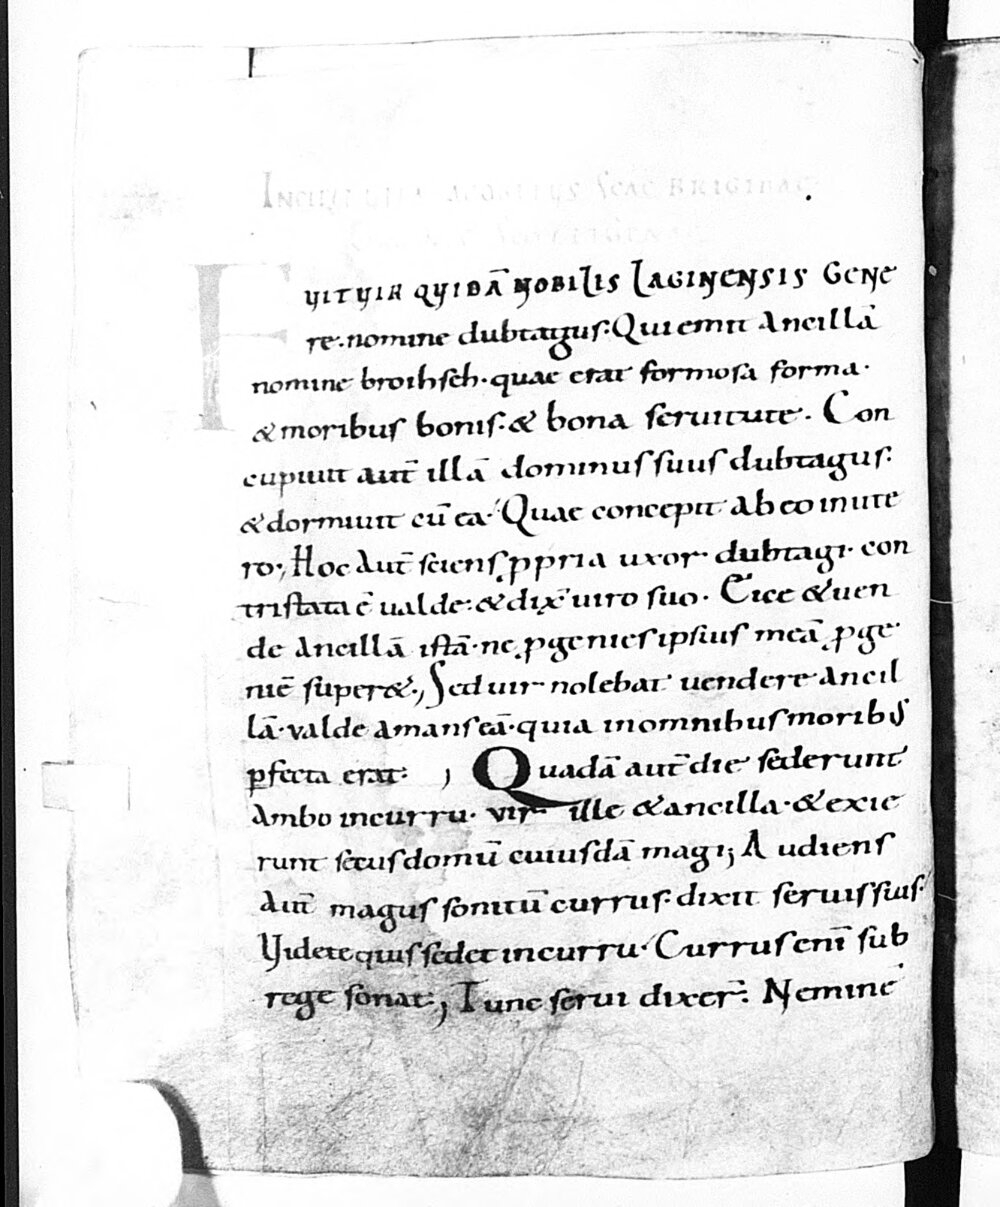 INCIPIT VITA ... SCAE BRIGIDAE
FUITUIR QUIDĀ NOBILIS LAGINENSIS GENE
re. nomine dubtagus: Qui emit Ancillā
nomine broihsch. quae erat formosa forma.
& moribus bonis. & bona seruitute. Con
cupiuit aut̄ illā dominus suus dubtagus:
& dormiuit cū ea. Quae concepit ab eo inute
ro; Hoc Aut̄ sciens ꝓpria uxor dubtagi. con
tristata ē ualde. & dix̄ uiro suo. Eice & uen
de Ancillā istā. ne ꝓgenies ipsius meā ꝓge
niē super&; Sed uir nolebat uendere Ancil
lā. valde amans eā. quia inomnibus moribus
ꝑfecta erat: , Quadā aut̄ die sederunt
Ambo incurru. vir ille & ancilla. & exie
runt secus domū cuiusdā magi; Audiens
Aut̄ magus sonitū currus. dixit seruis suis.
Videte quis sedet incurru. Currus enī sub
rege sonat; Tunc serui dixer̄. Neminē